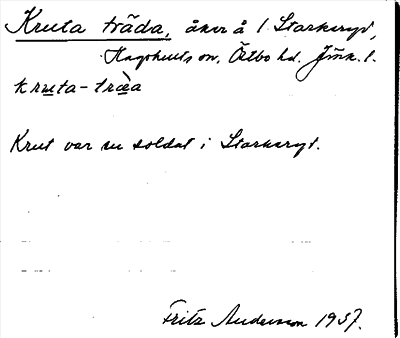 Kruta träda, åker å 1 Starkeryd,
Hagshults sn, Östbo hd. Jönk. l.
kruta-træ̀a
Krut var en soldat i Starkeryd.
Fritz Anderson 1937.